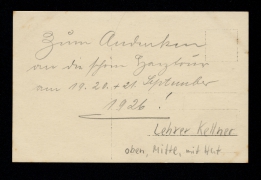 Zum Andenken
an die schöne Harztour
am 19. 20. + 21. September
1926!
Lehrer Kellner
oben, Mitte, mit Hut